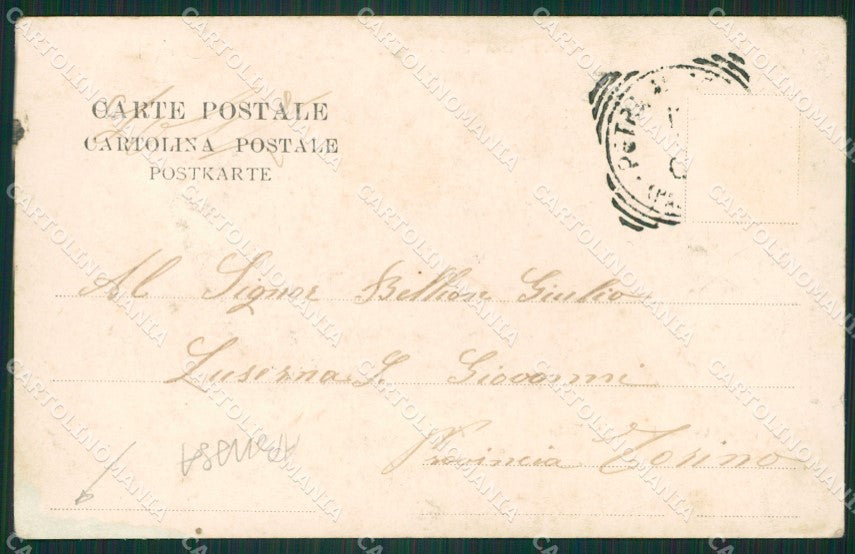 CARTE POSTALE
CARTOLINA POSTALE
POSTKARTE
Al Signor Bellion Giulio
Luserna S. Giovanni
Provincia d Torino
CARTOLINOMANIA